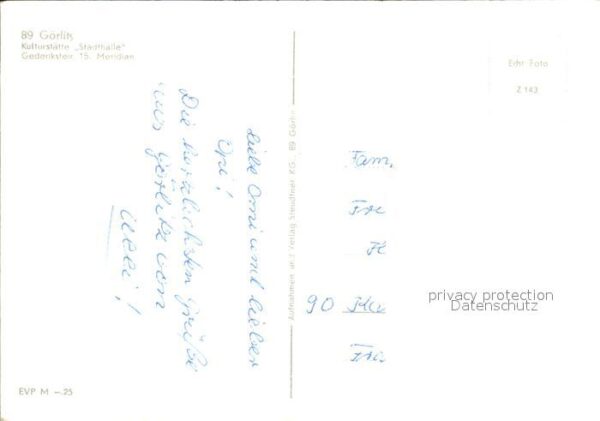 89 Görlitz
Kulturstätte „Stadthalle"
Gedenkstein 15. Meridian
Echt Foto
Z 143
Liebe Omi und lieber
Opi!
Die herzlichsten Grüße
aus Görlitz von
Aufnahmen und Verlag Steudtner KG, 89 Görlitz
Fam.
90
privacy protection
Datenschutz
EVP M –.25